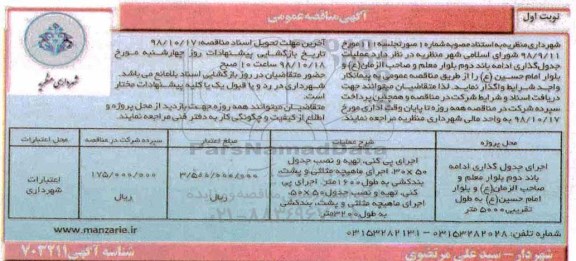 نوبت اول
آگهی مناقصه عمومی
شهرداری منظریه
شهرداری منظریه به استناد مصوبه شماره ۱ صورتجلسه: ۱۱ مورخ
۹۸/۹/۱۱ شورای اسلامی شهر منظریه در نظر دارد عملیات
جدول گذاری ادامه باند دوم بلوار معلم و صاحب الزمان(ع) و
بلوار امام حسین(ع) را از طریق مناقصه عمومی به پیمانکار
واجد شرایط واگذار نماید. لذا متقاضیان میتوانند جهت
دریافت اسناد و شرایط شرکت در مناقصه و همچنین پرداخت
سپرده شرکت در مناقصه همه روزه تا پایان وقت اداری مورخ
۹۸/۱۰/۱۷ به واحد مالی شهرداری منظریه مراجعه نمایند.
آخرین مهلت تحویل اسناد مناقصه: ۹۸/۱۰/۱۷
تاریخ بازگشایی پیشنهادات روز چهارشنبه مورخ
۹۸/۱۰/۱۸ ساعت ۱۰ صبح
حضور متقاضیان در روز بازگشایی اسناد بلامانع می باشد.
شهرداری در رد و یا قبول یک یا کلیه پیشنهادات مختار
است.
متقاضیان میتوانند همه روزه جهت بازدید از محل پروژه و
اطلاع از کیفیت و چگونگی کار به دفتر فنی مراجعه نمایند.
محل پروژه
شرح عملیات
مبلغ اعتبار
سپرده شرکت در مناقصه
محل اعتبارات
اجرای جدول گذاری ادامه
باند دوم بلوار معلم و
صاحب الزمان(ع) و بلوار
امام حسین(ع) به طول
تقریبی ۵۰۰۰ متر
اجرای پی کنی، تهیه و نصب جدول
۵۰×۳۰، اجرای ماهیچه مثلثی و پشت
بندکشی به طول ۱۶۰۰ متر، اجرای پی
کنی، تهیه و نصب جدول ۵۰×۵۰،
اجرای ماهیچه مثلثی و پشت، بندکشی
به طول ۳۲۰۰ متر
۳/۵۰۰/۰۰۰/۰۰۰
ریال
۱۷۵/۰۰۰/۰۰۰
ریال
اعتبارات
شهرداری
شماره تلفن: ۰۳۱۵۳۲۸۲۰۲۸ – ۰۳۱۵۳۲۸۲۱۳۱
www.manzarie.ir
شهردار – سید علی مرتضوی
شناسه آگهی ۷۰۳۲۱۱
ParsNamadData